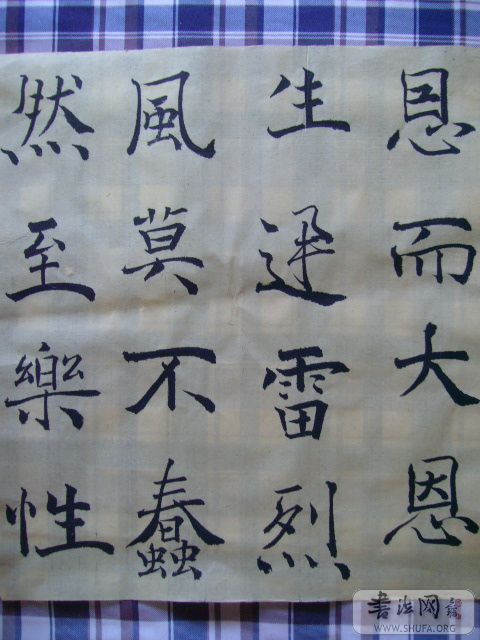 恩而大恩
生迅雷烈
風莫不蠢
然至樂性
書法网
WWW.SHUFA.ORG